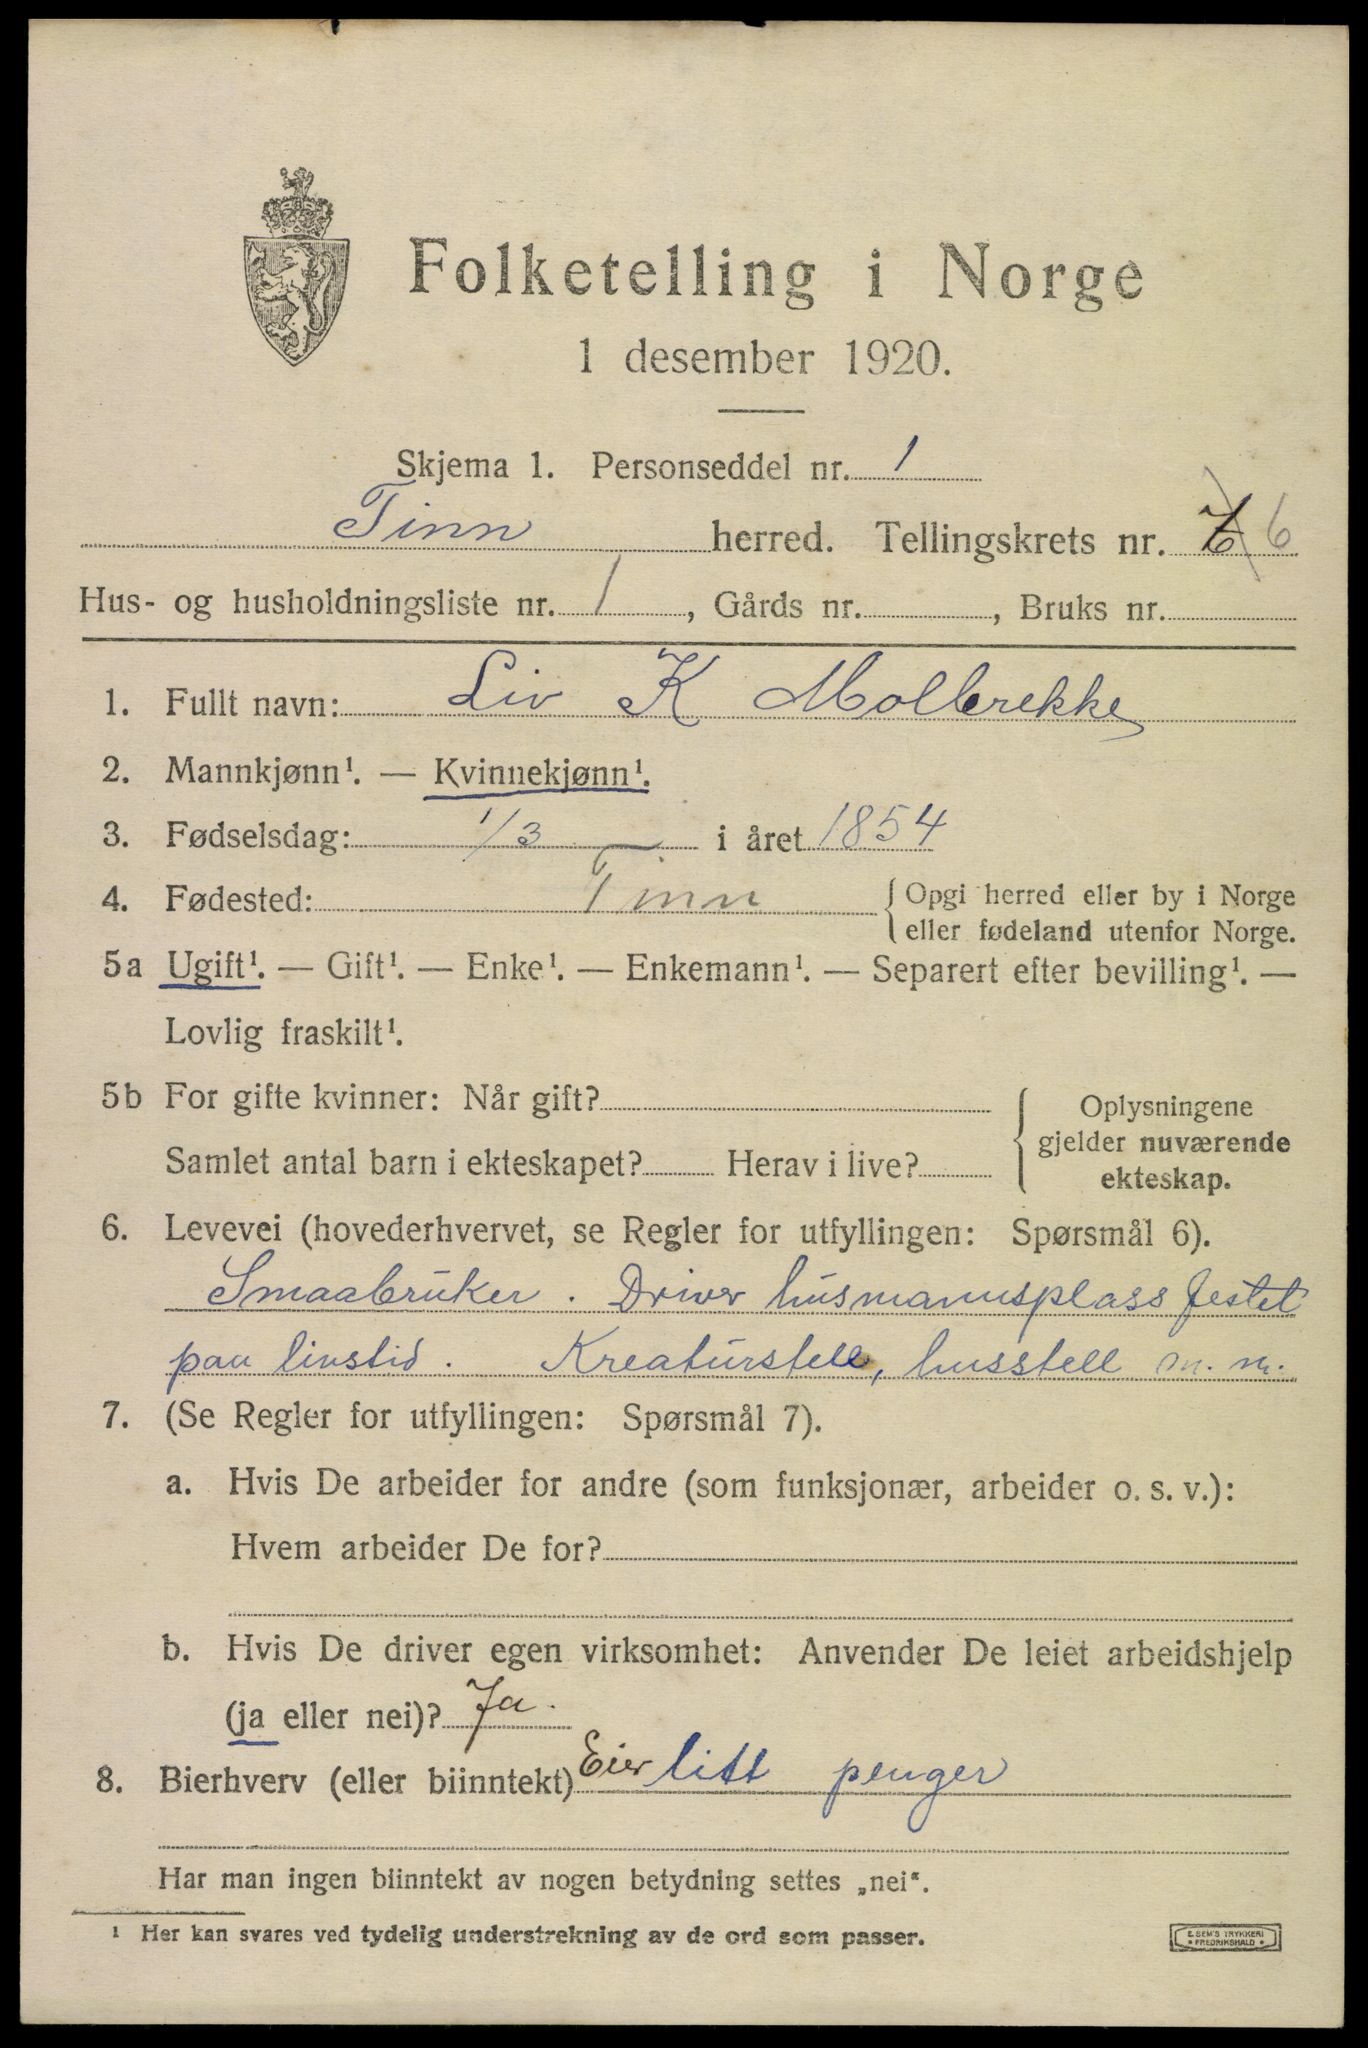 Folketelling i Norge
1 desember 1920.
Skjema 1. Personseddel nr. 1
Tinn herred. Tellingskrets nr. 6
Hus- og husholdningsliste nr. 1, Gårds nr. , Bruks nr.
1. Fullt navn: Liv K Molbrekke
2. Mannkjønn¹. — Kvinnekjønn¹.
3. Fødselsdag: 1/3 i året 1854
4. Fødested: Tinn {Opgi herred eller by i Norge
eller fødeland utenfor Norge.
5a Ugift¹. — Gift¹. — Enke¹. — Enkemann¹. — Separert efter bevilling¹. —
Lovlig fraskilt¹.
5b For gifte kvinner: Når gift?
Samlet antal barn i ekteskapet? Herav i live?
{Oplysningene
gjelder nuværende
ekteskap.
6. Levevei (hovederhvervet, se Regler for utfyllingen: Spørsmål 6).
Smaabruker. Driver husmannsplass festet
paa livstid. Kreaturstell, husstell m. m.
7. (Se Regler for utfyllingen: Spørsmål 7).
a. Hvis De arbeider for andre (som funksjonær, arbeider o. s. v.):
Hvem arbeider De for?
b. Hvis De driver egen virksomhet: Anvender De leiet arbeidshjelp
(ja eller nei)? Ja.
8. Bierhverv (eller biinntekt) Eier litt penger
Har man ingen biinntekt av nogen betydning settes „nei“.
¹ Her kan svares ved tydelig understrekning av de ord som passer.
E. SEM'S TRYKKERI
* FREDRIKSHALD *